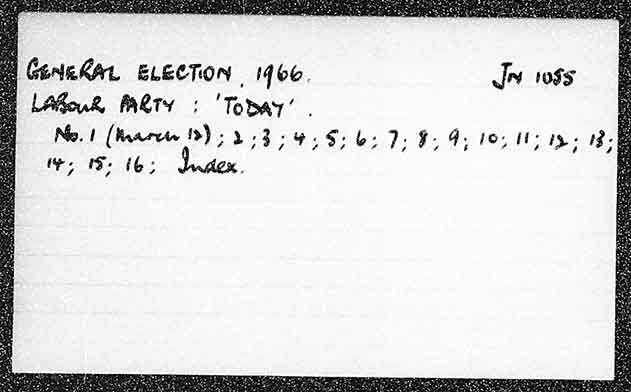 GENERAL ELECTION, 1966. JN 1055
LABOUR PARTY : 'TODAY'.
No. 1 (March 12); 2; 3; 4; 5; 6; 7; 8; 9; 10; 11; 12; 13;
14; 15; 16; Index.